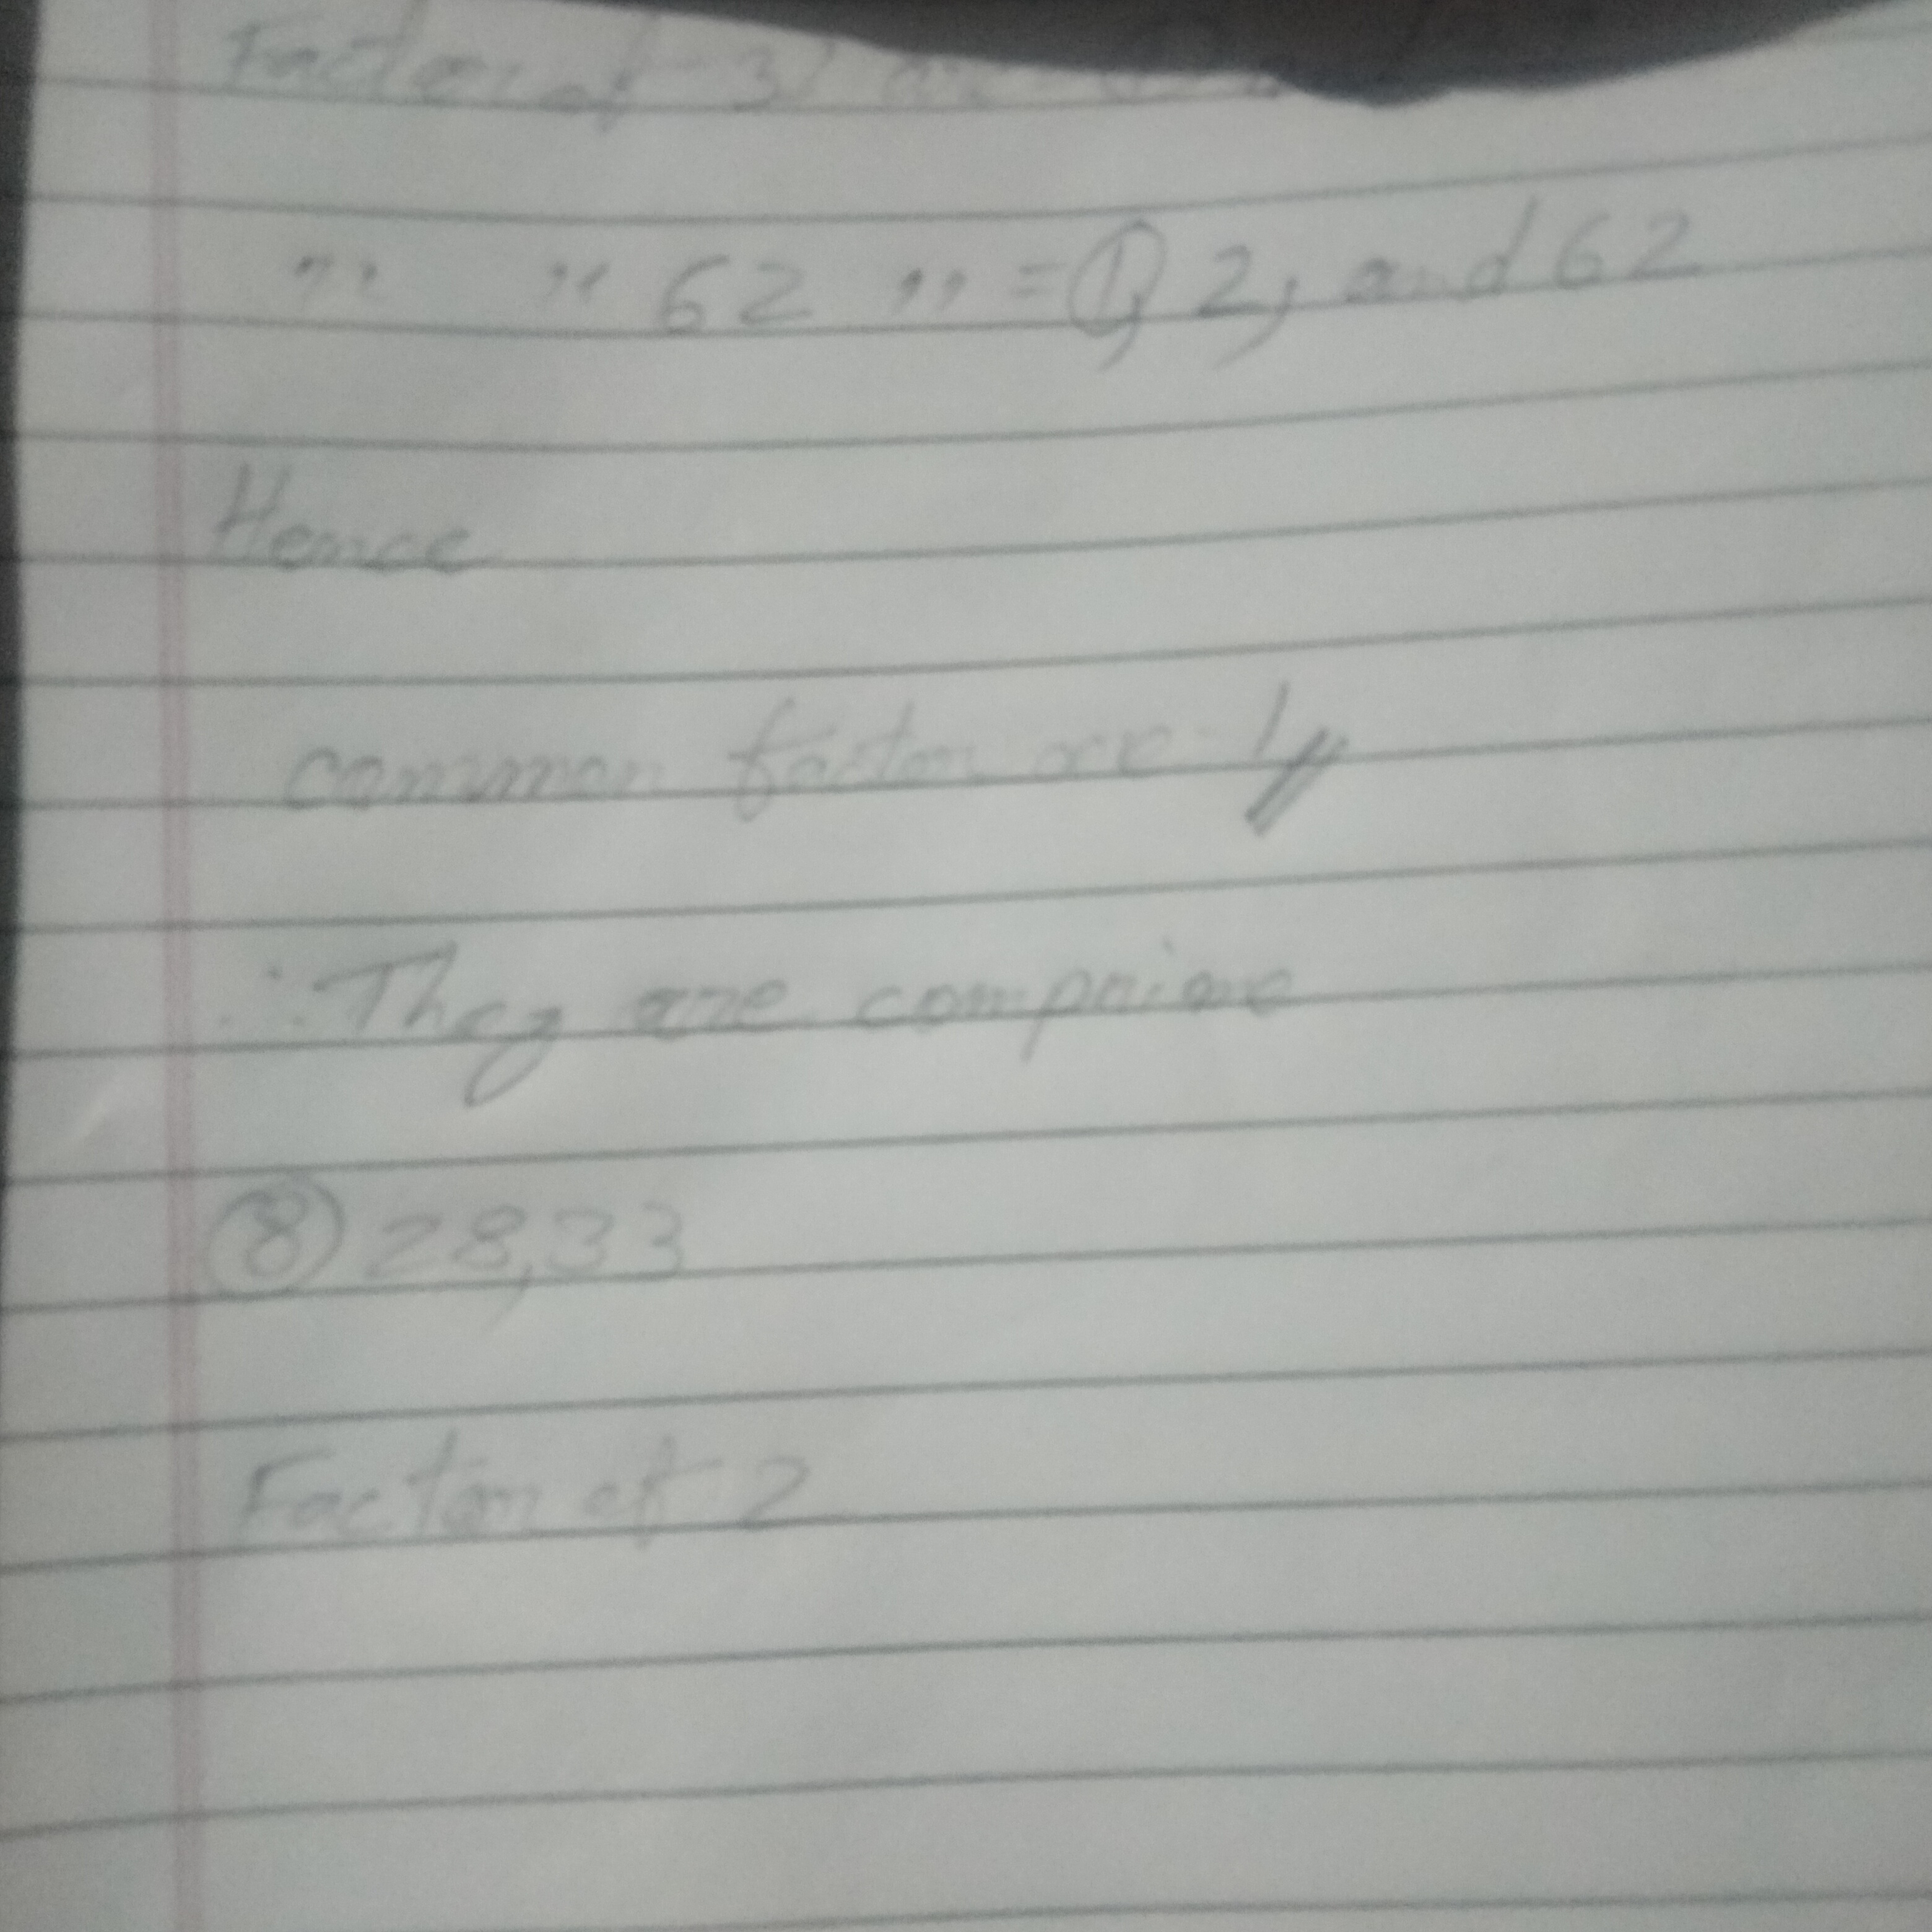 Factor of 31 are
" " 62 " = 1, 2, and 62
Hence
common factor are 1
∴ They are comprime
8 28,33
Factor of 2